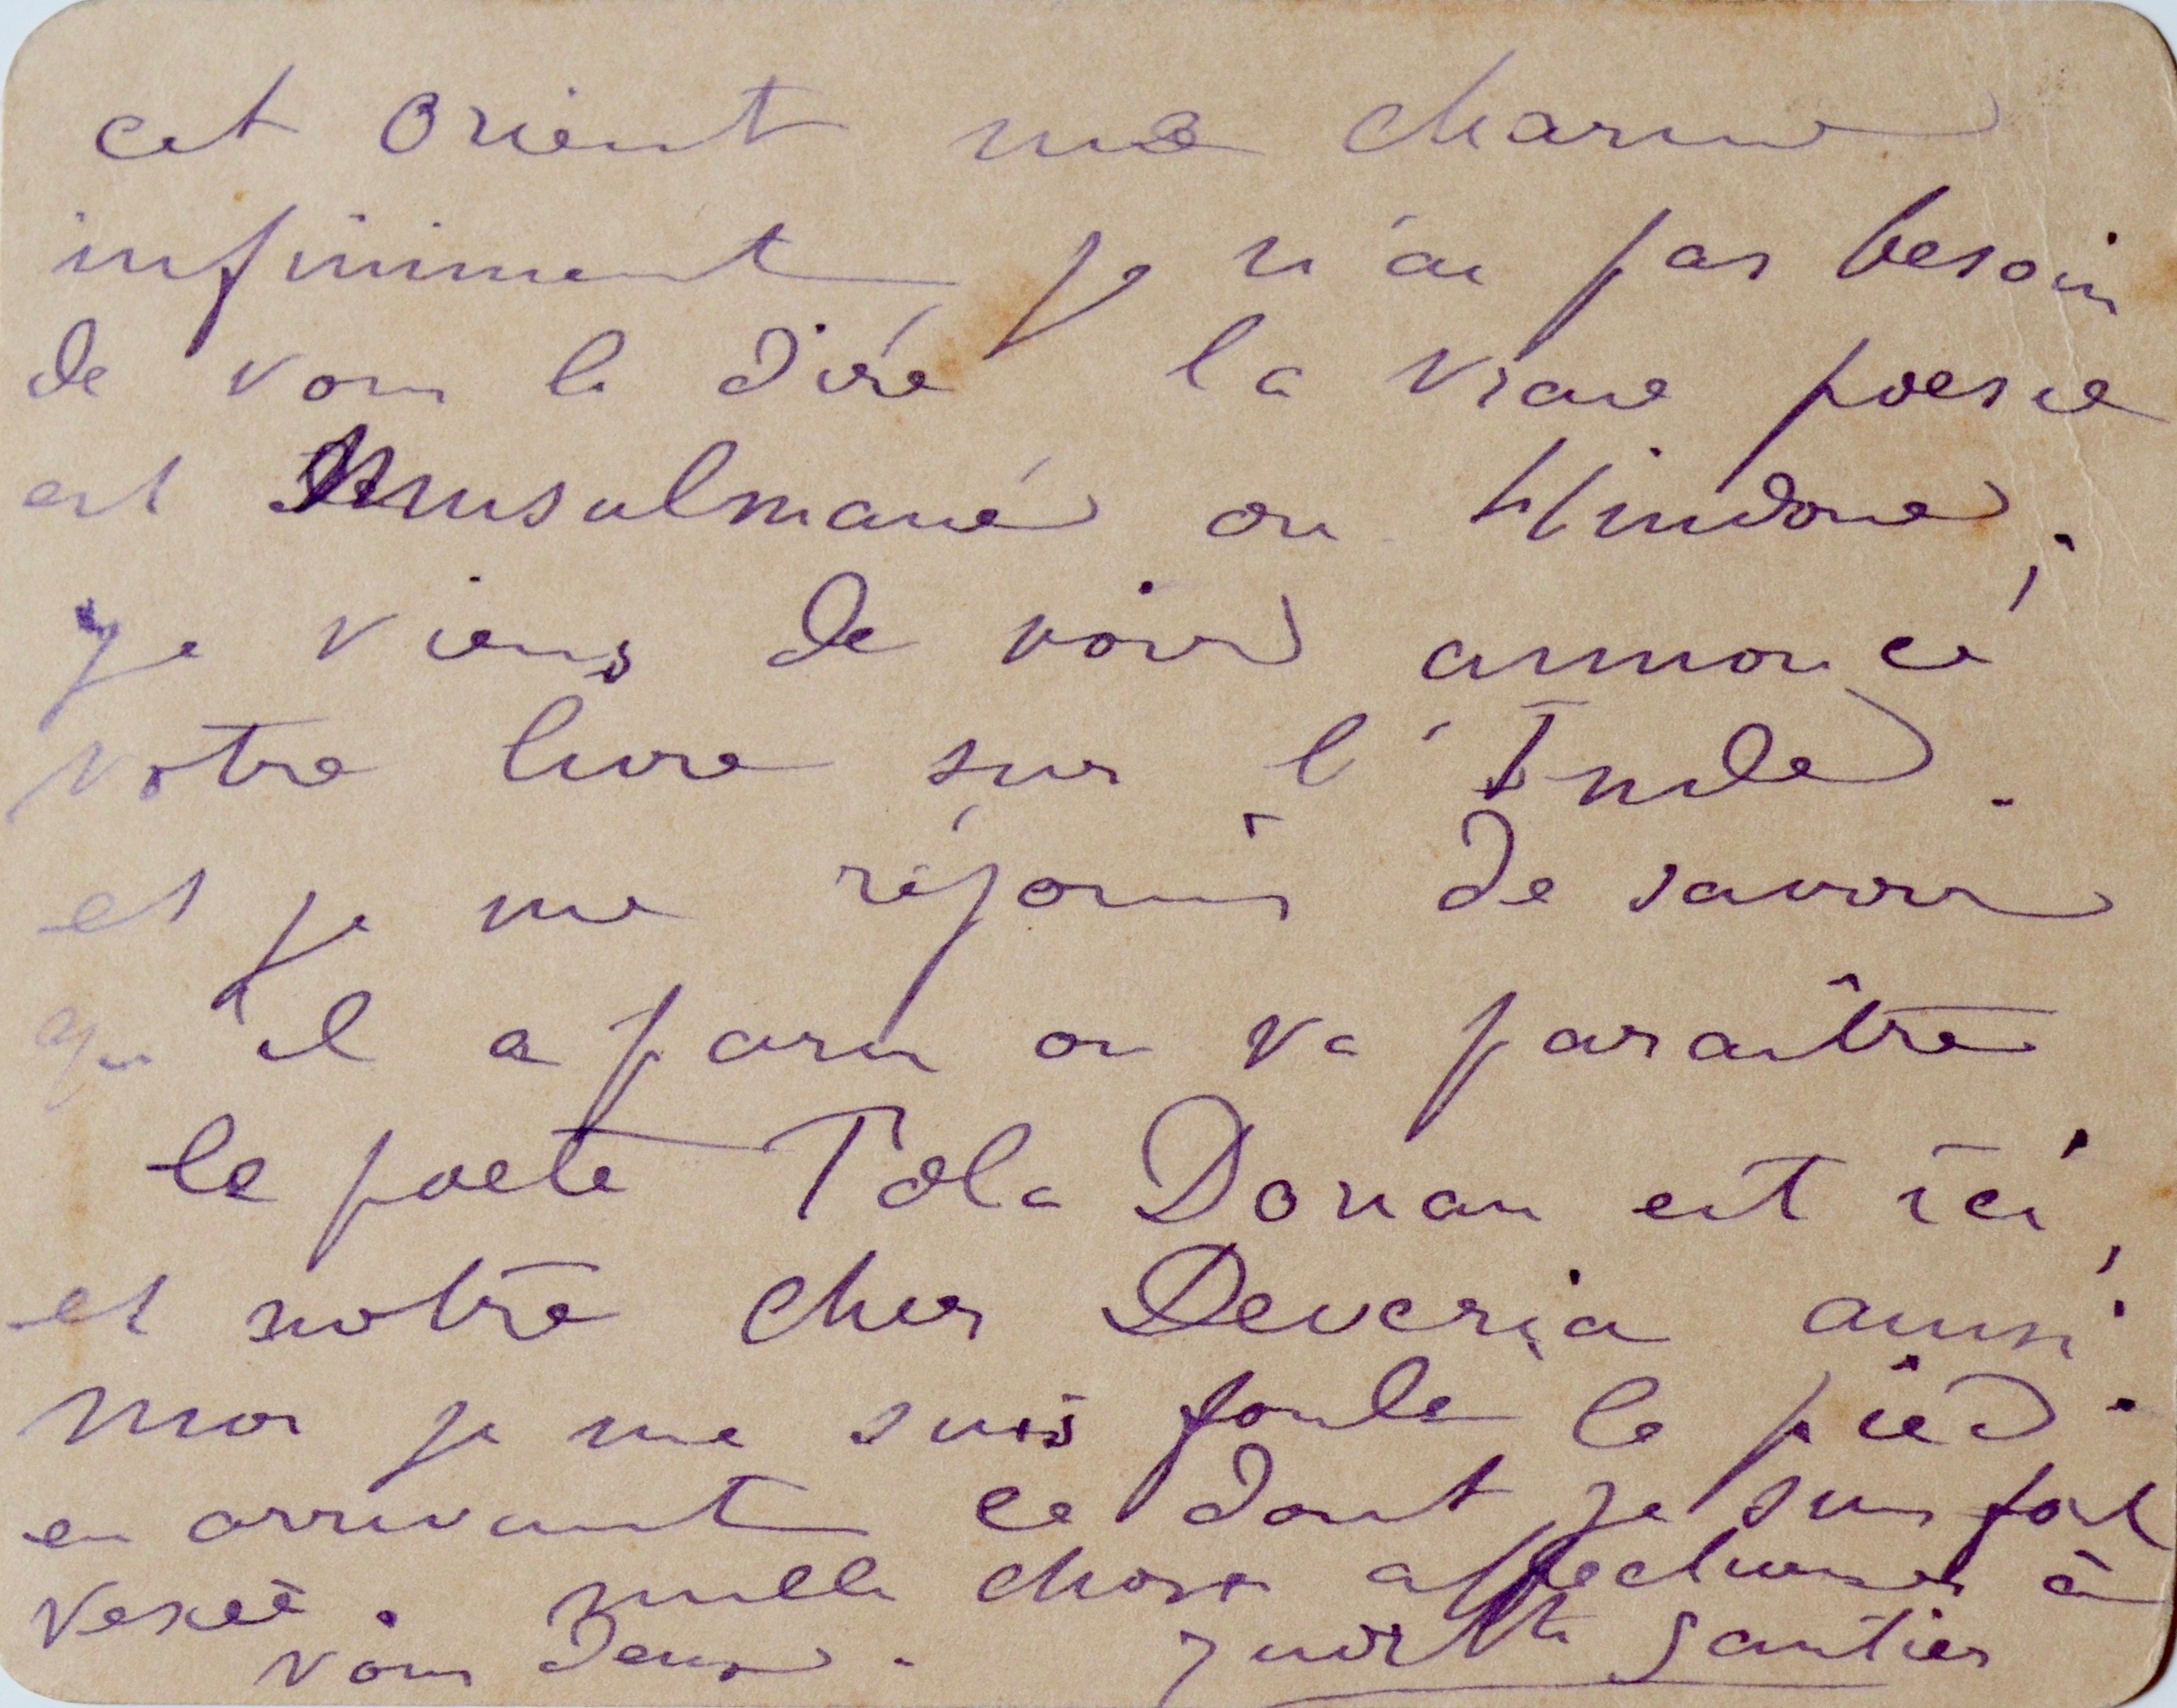 cet Orient me charme
infiniment, je n'ai pas besoin
de vous le dire la vraie poesie
est Musulmane ou Hindoue;
Je viens de voir annoncé
votre livre sur l'Inde.
et je me réjouis de savoir
qu'il a paru ou va paraître
le poete Tola Dorian est ici,
et notre cher Deveria aussi
Moi je me suis foulé le pied.
en arrivant ce dont je suis fort
vexée. mille choses affectueuses à
vous deux. Judith Gautier